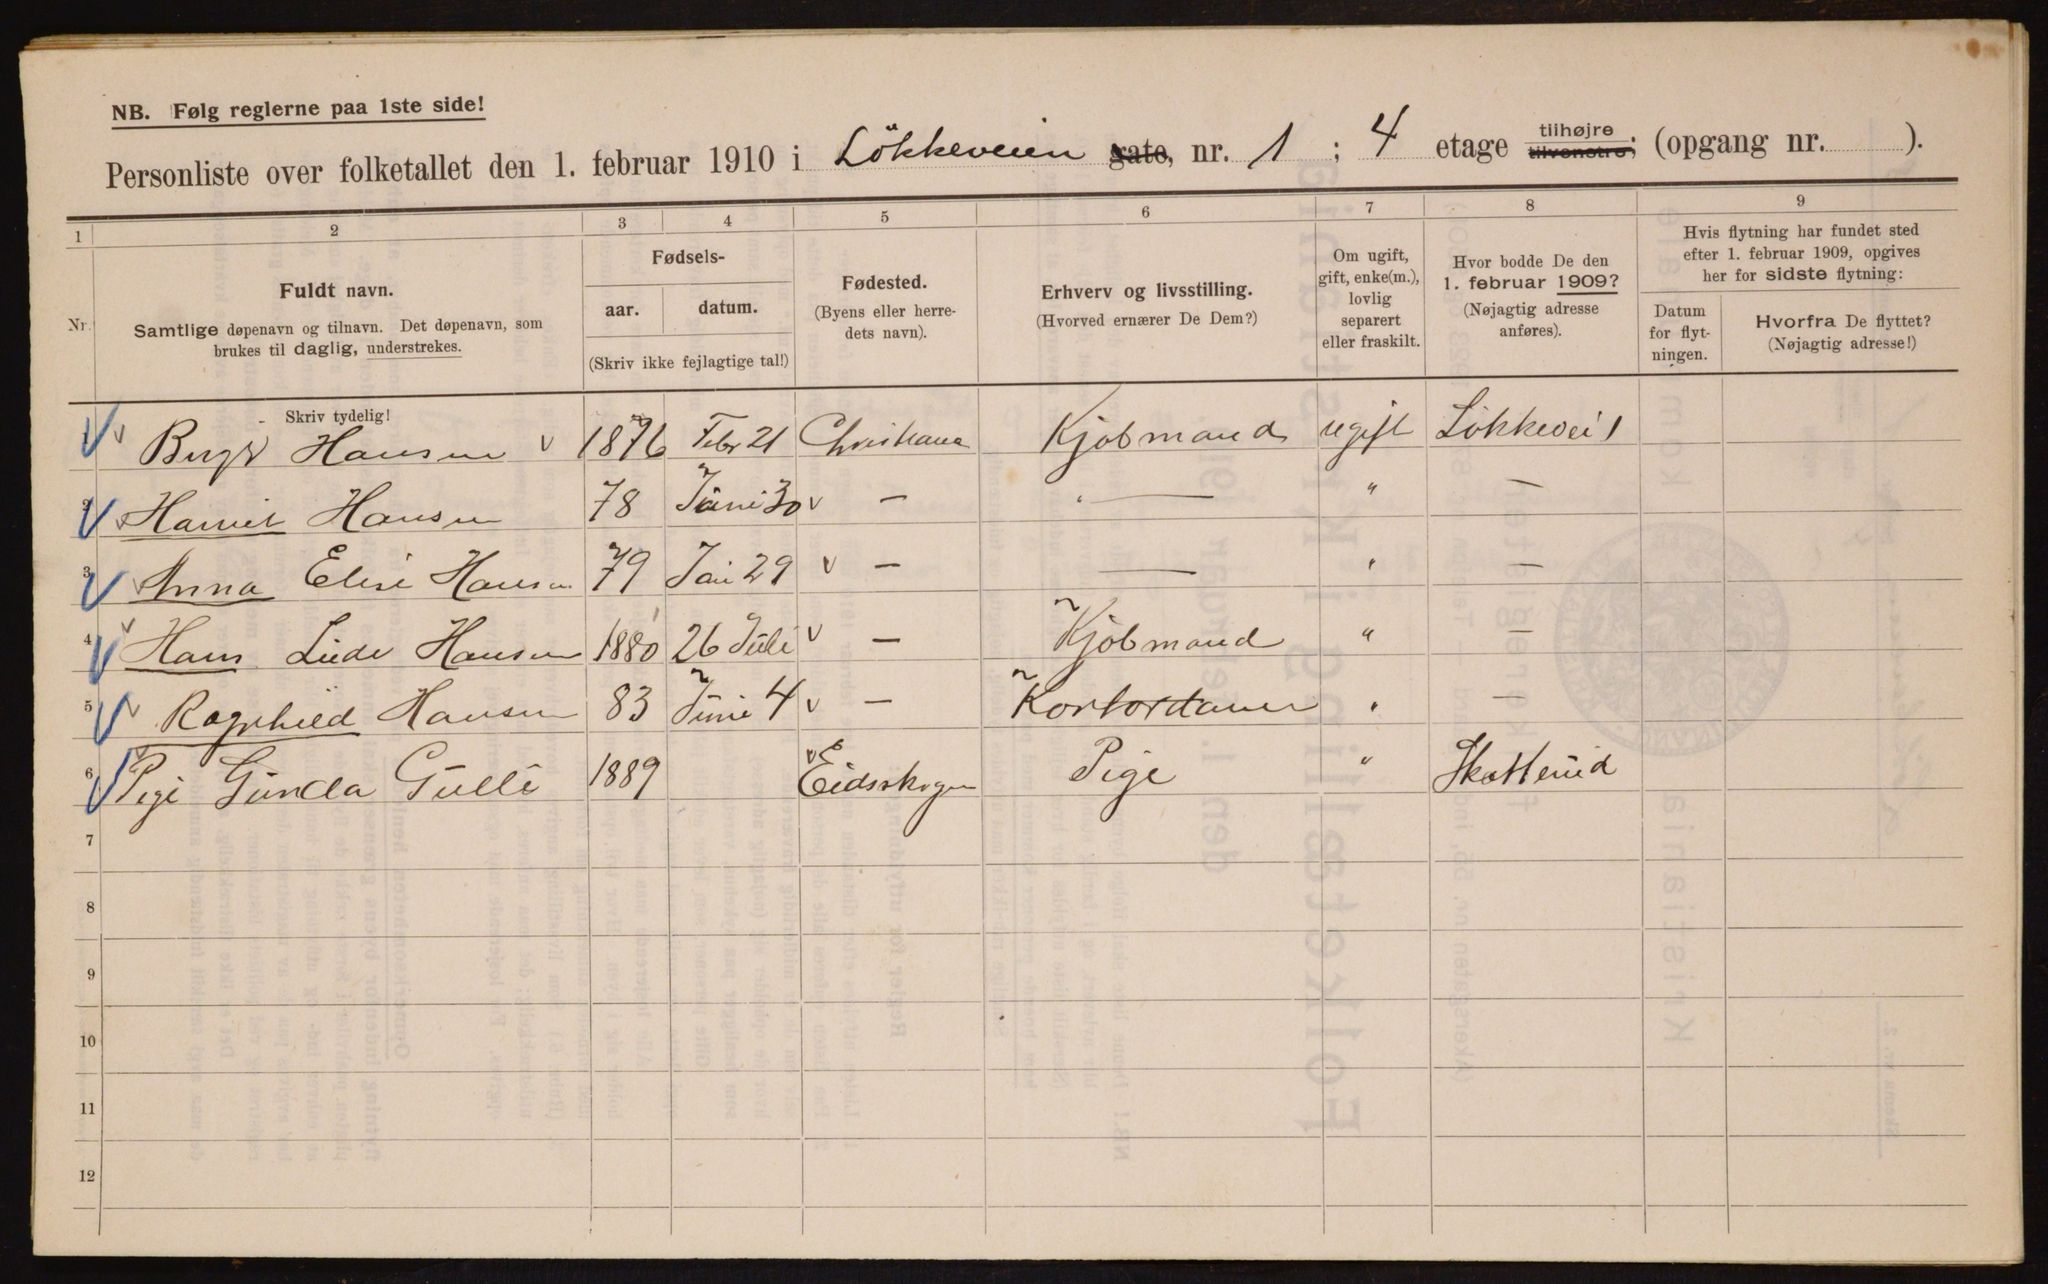 NB. Følg reglerne paa 1ste side!
Personliste over folketallet den 1. februar 1910 i Løkkeveien gate, nr. 1 ; 4 etage tilhøjre tilvenstre; (opgang nr. ).
1 2 3 4 5 6 7 8 9
Nr.
Fuldt navn.
Samtlige døpenavn og tilnavn. Det døpenavn, som
brukes til daglig, understrekes.
Fødsels-
aar. datum.
(Skriv ikke fejlagtige tal!)
Fødested.
(Byens eller herre-
dets navn).
Erhverv og livsstilling.
(Hvorved ernærer De Dem?)
Om ugift,
gift, enke(m.),
lovlig
separert
eller fraskilt.
Hvor bodde De den
1. februar 1909?
(Nøjagtig adresse
anføres).
Hvis flytning har fundet sted
efter 1. februar 1909, opgives
her for sidste flytning:
Datum
for flyt-
ningen.
Hvorfra De flyttet?
(Nøjagtig adresse!)
Skriv tydelig!
1 Hansen 1876 Febr 21 Christiania Kjøbmand ugift Løkkevei 1
2 Harriet Hansen 78 Juni 30 — — " —
3 Anna Elise Hansen 79 Jan 29 — — " —
4 Hans Hansen 1880 26 Juli — Kjøbmand " —
5 Ragnhild Hansen 83 Juni 4 — Kontordame " —
6 Pige Gunda Gulli 1889 Eidsskogen Pige " Skotterud
7
8
9
10
11
12